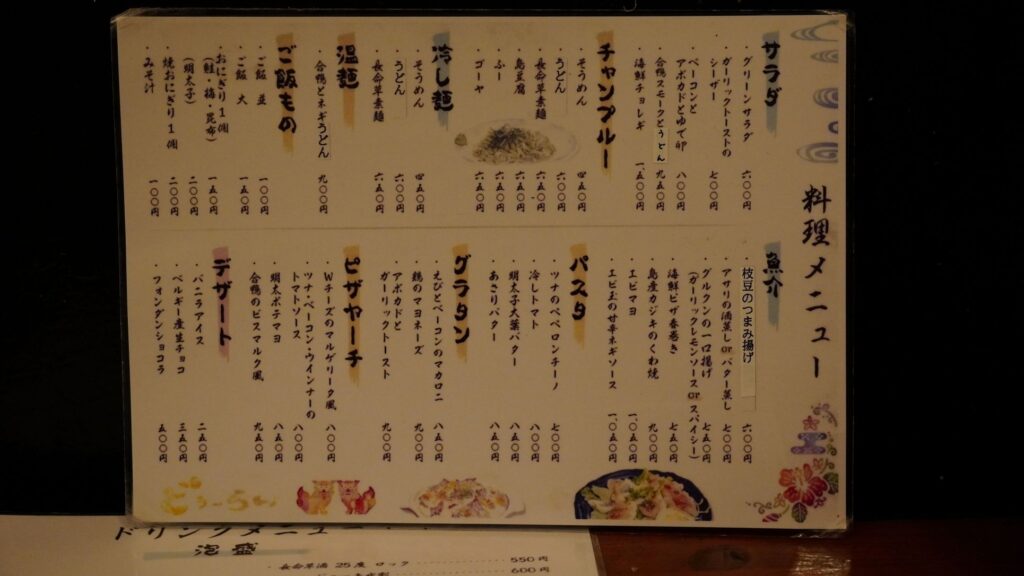 料理メニュー
サラダ
・グリーンサラダ 六〇〇円
・ガーリックトーストの
シーザー 七〇〇円
・ベーコンと
アボカドとゆで卵 八〇〇円
・合鴨スモークとうどん 九五〇円
・海鮮チョレギ 一、五〇〇円
チャンプルー
・そうめん 四五〇円
・うどん 六〇〇円
・長命草素麺 六五〇円
・島豆腐 六五〇円
・ふー 六五〇円
・ゴーヤ 六五〇円
冷し麺
・そうめん 四五〇円
・うどん 六〇〇円
・長命草素麺 六五〇円
温麺
・合鴨とネギうどん 九〇〇円
ご飯もの
・ご飯 並 一〇〇円
・ご飯 大 一五〇円
・おにぎり1個
(鮭・梅・昆布) 一五〇円
(明太子) 二〇〇円
・焼おにぎり1個 二〇〇円
・みそ汁 一〇〇円
魚介
・枝豆のつまみ揚げ 六〇〇円
・アサリの酒蒸し or バター蒸し 七〇〇円
・グルクンの一口揚げ 七五〇円
(ガーリックレモンソース or スパイシー)
・海鮮ピザ春巻き 七五〇円
・島産カジキのくわ焼 九〇〇円
・エビマヨ 一、〇五〇円
・エビ玉の甘辛ネギソース 一、〇五〇円
パスタ
・ツナのペペロンチーノ 七〇〇円
・冷しトマト 八〇〇円
・明太子大葉バター 八五〇円
・あさりバター 八五〇円
グラタン
・えびとベーコンのマカロニ 八五〇円
・鶏のマヨネーズ 九〇〇円
・アボカドと
ガーリックトースト 九〇〇円
ピザヤーチ
・Wチーズのマルゲリータ風 八〇〇円
・ツナ・ベーコン・ウインナーの
トマトソース 八〇〇円
・明太ポテマヨ 八五〇円
・合鴨のビスマルク風 九五〇円
デザート
・バニラアイス 二五〇円
・ベルギー産生チョコ 三五〇円
・フォンダンショコラ 五〇〇円
どぅーらい
ドリンクメニュー
泡盛
・長命草酒 25度 ロック 550円
600円